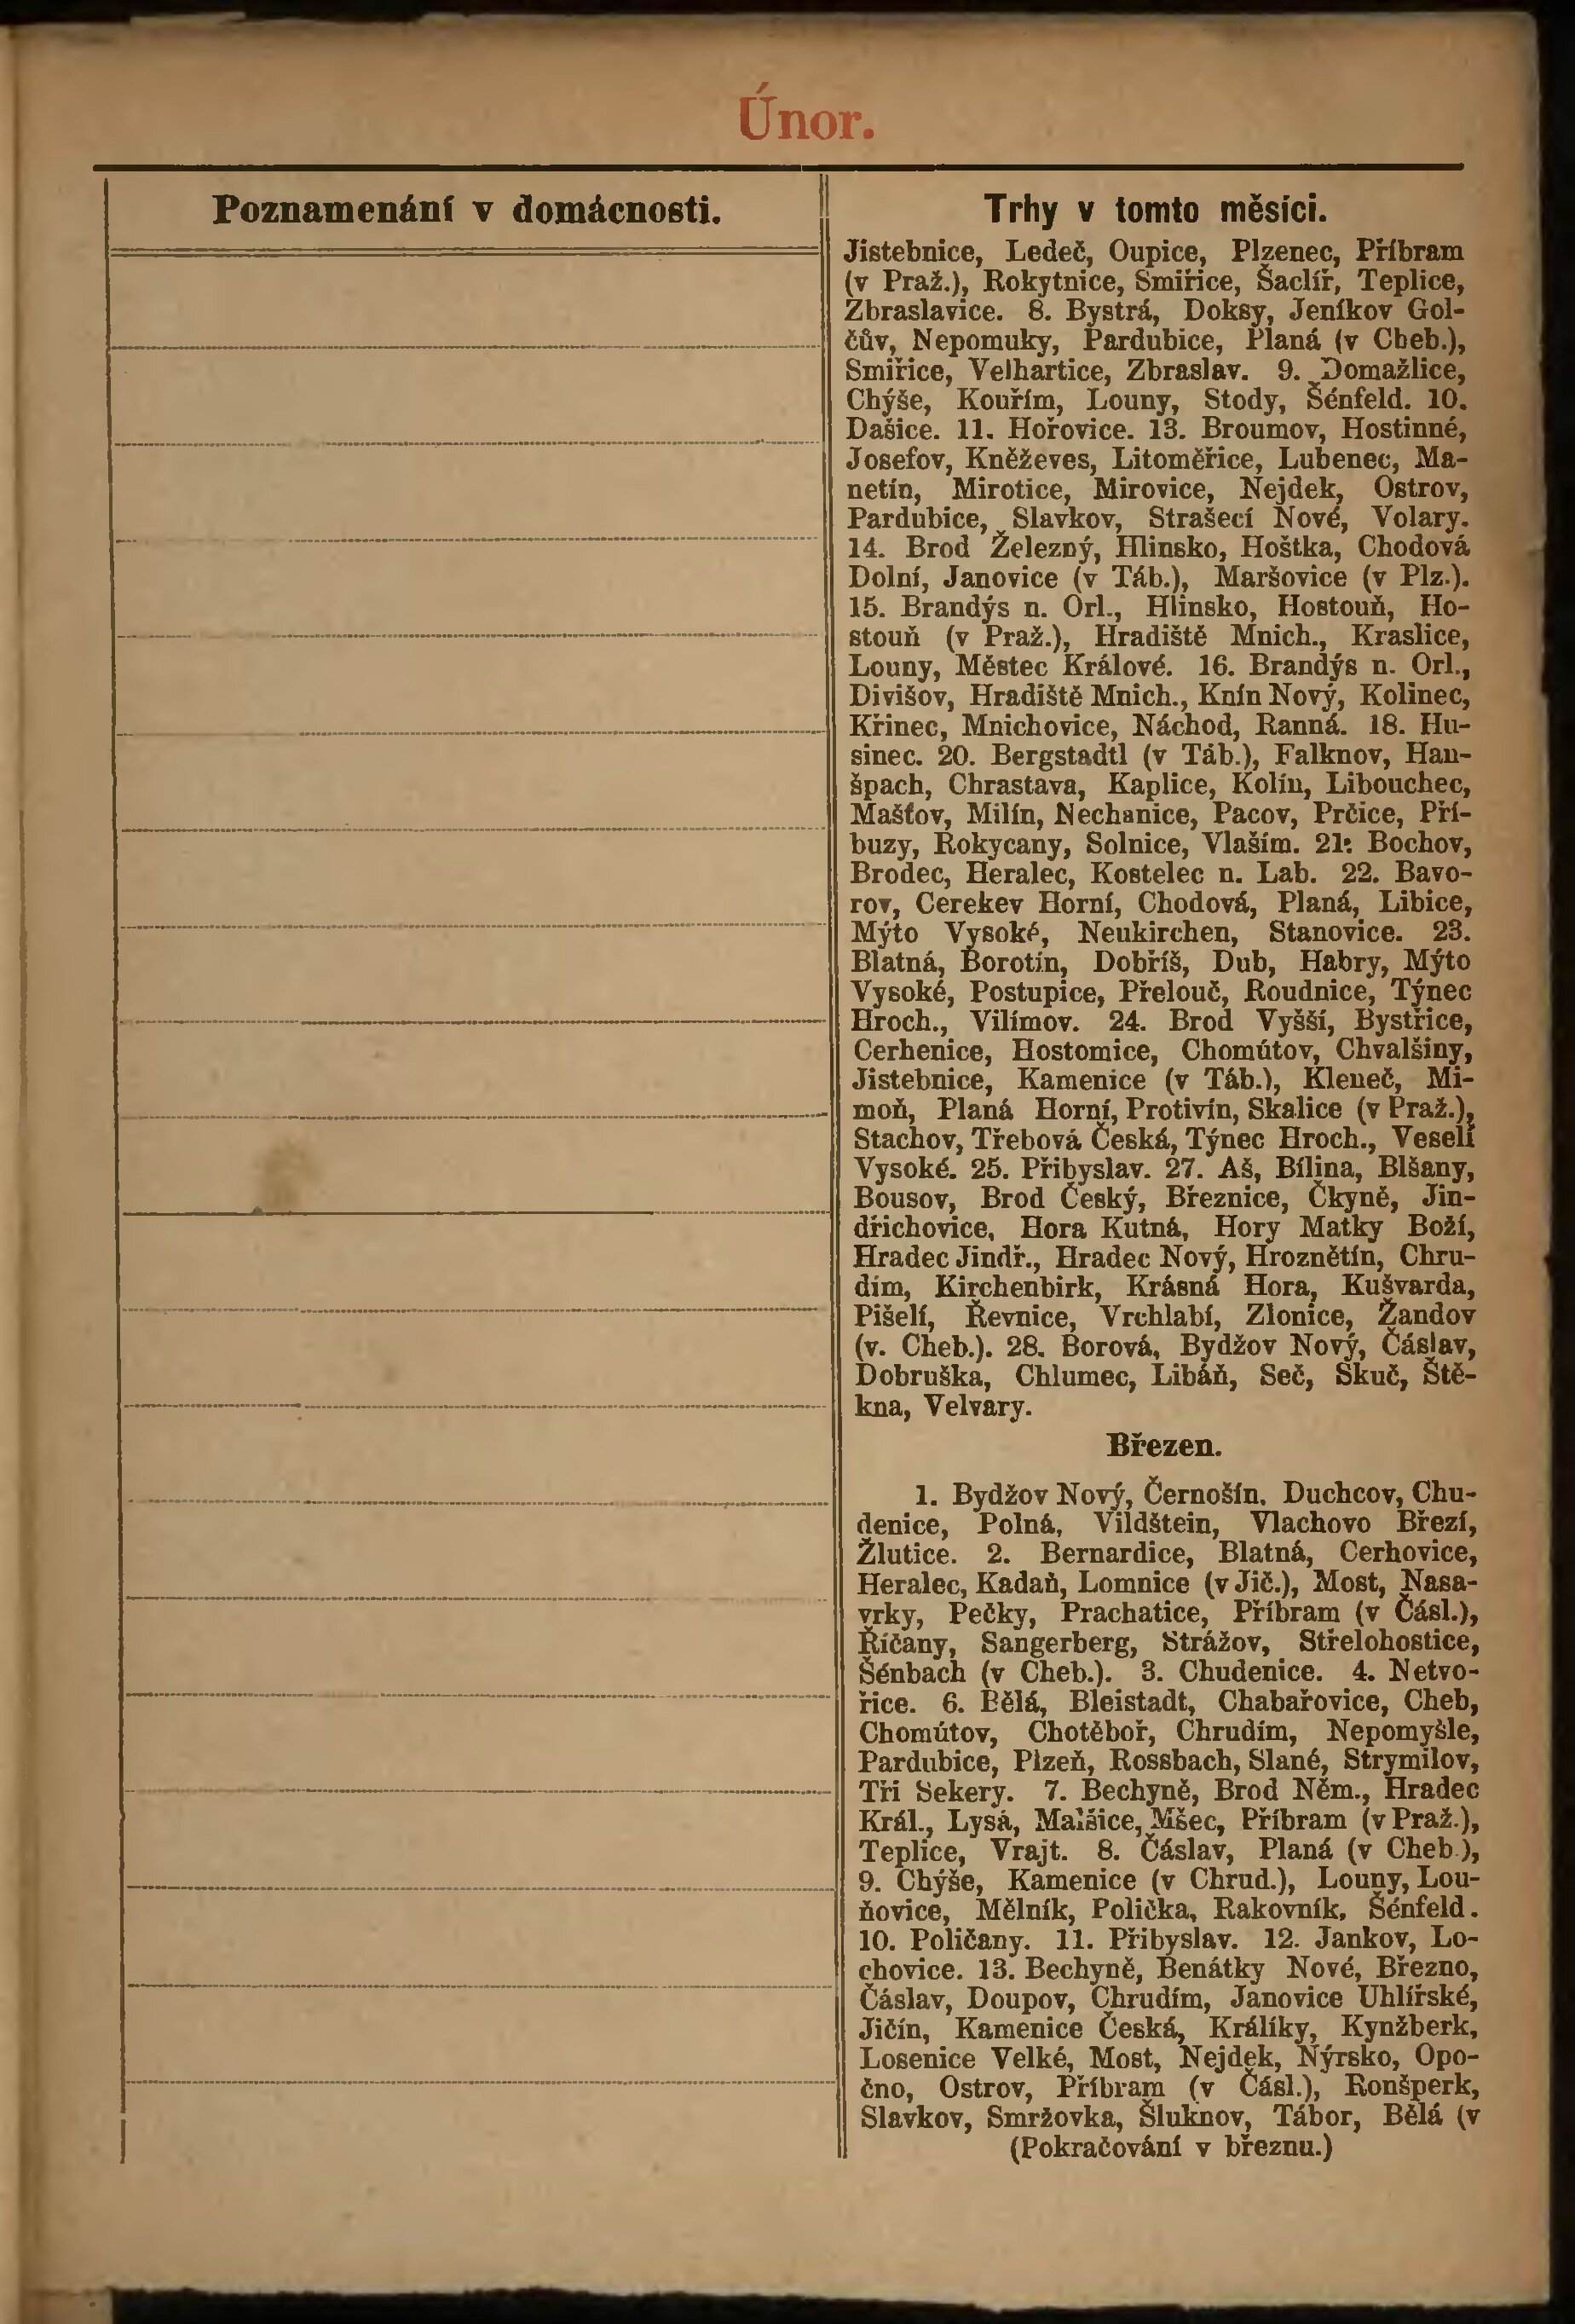 Únor.
Poznamenání v domácnosti.
Trhy v tomto měsíci.
Jistebnice, Ledeč, Oupice, Plzenec, Příbram
(v Praž.), Rokytnice, Smiřice, Šaclíř, Teplice,
Zbraslavice. 8. Bystrá, Doksy, Jeníkov Gol-
čův, Nepomuky, Pardubice, Planá (v Cheb.),
Smiřice, Velhartice, Zbraslav. 9. Domažlice,
Chýše, Kouřím, Louny, Stody, Šénfeld. 10.
Dašice. 11. Hořovice. 13. Broumov, Hostinné,
Josefov, Kněževes, Litoměřice, Lubenec, Ma-
netín, Mirotice, Mirovice, Nejdek, Ostrov,
Pardubice, Slavkov, Strašecí Nové, Volary.
14. Brod Železný, Hlinsko, Hoštka, Chodová
Dolní, Janovice (v Táb.), Maršovice (v Plz.).
15. Brandýs n. Orl., Hlinsko, Hostouň, Ho-
stouň (v Praž.), Hradiště Mnich., Kraslice,
Louny, Městec Králové. 16. Brandýs n. Orl.,
Divišov, Hradiště Mnich., Knín Nový, Kolinec,
Křinec, Mnichovice, Náchod, Ranná. 18. Hu-
sinec. 20. Bergstadtl (v Táb.), Falknov, Han-
špach, Chrastava, Kaplice, Kolín, Libouchec,
Mašťov, Milín, Nechanice, Pacov, Prčice, Pří-
buzy, Rokycany, Solnice, Vlaším. 21. Bochov,
Brodec, Heralec, Kostelec n. Lab. 22. Bavo-
rov, Cerekev Horní, Chodová, Planá, Libice,
Mýto Vysoké, Neukirchen, Stanovice. 23.
Blatná, Borotín, Dobříš, Dub, Habry, Mýto
Vysoké, Postupice, Přelouč, Roudnice, Týnec
Hroch., Vilímov. 24. Brod Vyšší, Bystřice,
Cerhenice, Hostomice, Chomútov, Chvalšiny,
Jistebnice, Kamenice (v Táb.), Kleneč, Mi-
moň, Planá Horní, Protivín, Skalice (v Praž.),
Stachov, Třebová Česká, Týnec Hroch., Veselí
Vysoké. 25. Přibyslav. 27. Aš, Bílina, Blšany,
Bousov, Brod Český, Březnice, Čkyně, Jin-
dřichovice, Hora Kutná, Hory Matky Boží,
Hradec Jindř., Hradec Nový, Hroznětín, Chru-
dim, Kirchenbirk, Krásná Hora, Kušvarda,
Pišelí, Řevnice, Vrchlabí, Zlonice, Žandov
(v. Cheb.). 28. Borová, Bydžov Nový, Čáslav,
Dobruška, Chlumec, Libáň, Seč, Skuč, Ště-
kna, Velvary.
Březen.
1. Bydžov Nový, Černošín, Duchcov, Chu-
denice, Polná, Vildštein, Vlachovo Březí,
Žlutice. 2. Bernardice, Blatná, Cerhovice,
Heralec, Kadaň, Lomnice (v Jič.), Most, Nasa-
vrky, Pečky, Prachatice, Příbram (v Čásl.),
Říčany, Sangerberg, Strážov, Střelohostice,
Šénbach (v Cheb.). 3. Chudenice. 4. Netvo-
řice. 6. Bělá, Bleistadt, Chabařovice, Cheb,
Chomútov, Chotěboř, Chrudím, Nepomyšle,
Pardubice, Plzeň, Rossbach, Slané, Strymilov,
Tři Sekery. 7. Bechyně, Brod Něm., Hradec
Král., Lysá, Malšice, Mšec, Příbram (v Praž.),
Teplice, Vrajt. 8. Čáslav, Planá (v Cheb.),
9. Chýše, Kamenice (v Chrud.), Louny, Lou-
ňovice, Mělník, Polička, Rakovník, Šénfeld.
10. Poličany. 11. Přibyslav. 12. Jankov, Lo-
chovice. 13. Bechyně, Benátky Nové, Březno,
Čáslav, Doupov, Chrudím, Janovice Uhlířské,
Jičín, Kamenice Česká, Králíky, Kynžberk,
Losenice Velké, Most, Nejdek, Nýrsko, Opo-
čno, Ostrov, Příbram (v Čásl.), Ronšperk,
Slavkov, Smržovka, Šluknov, Tábor, Bělá (v
(Pokračování v březnu.)